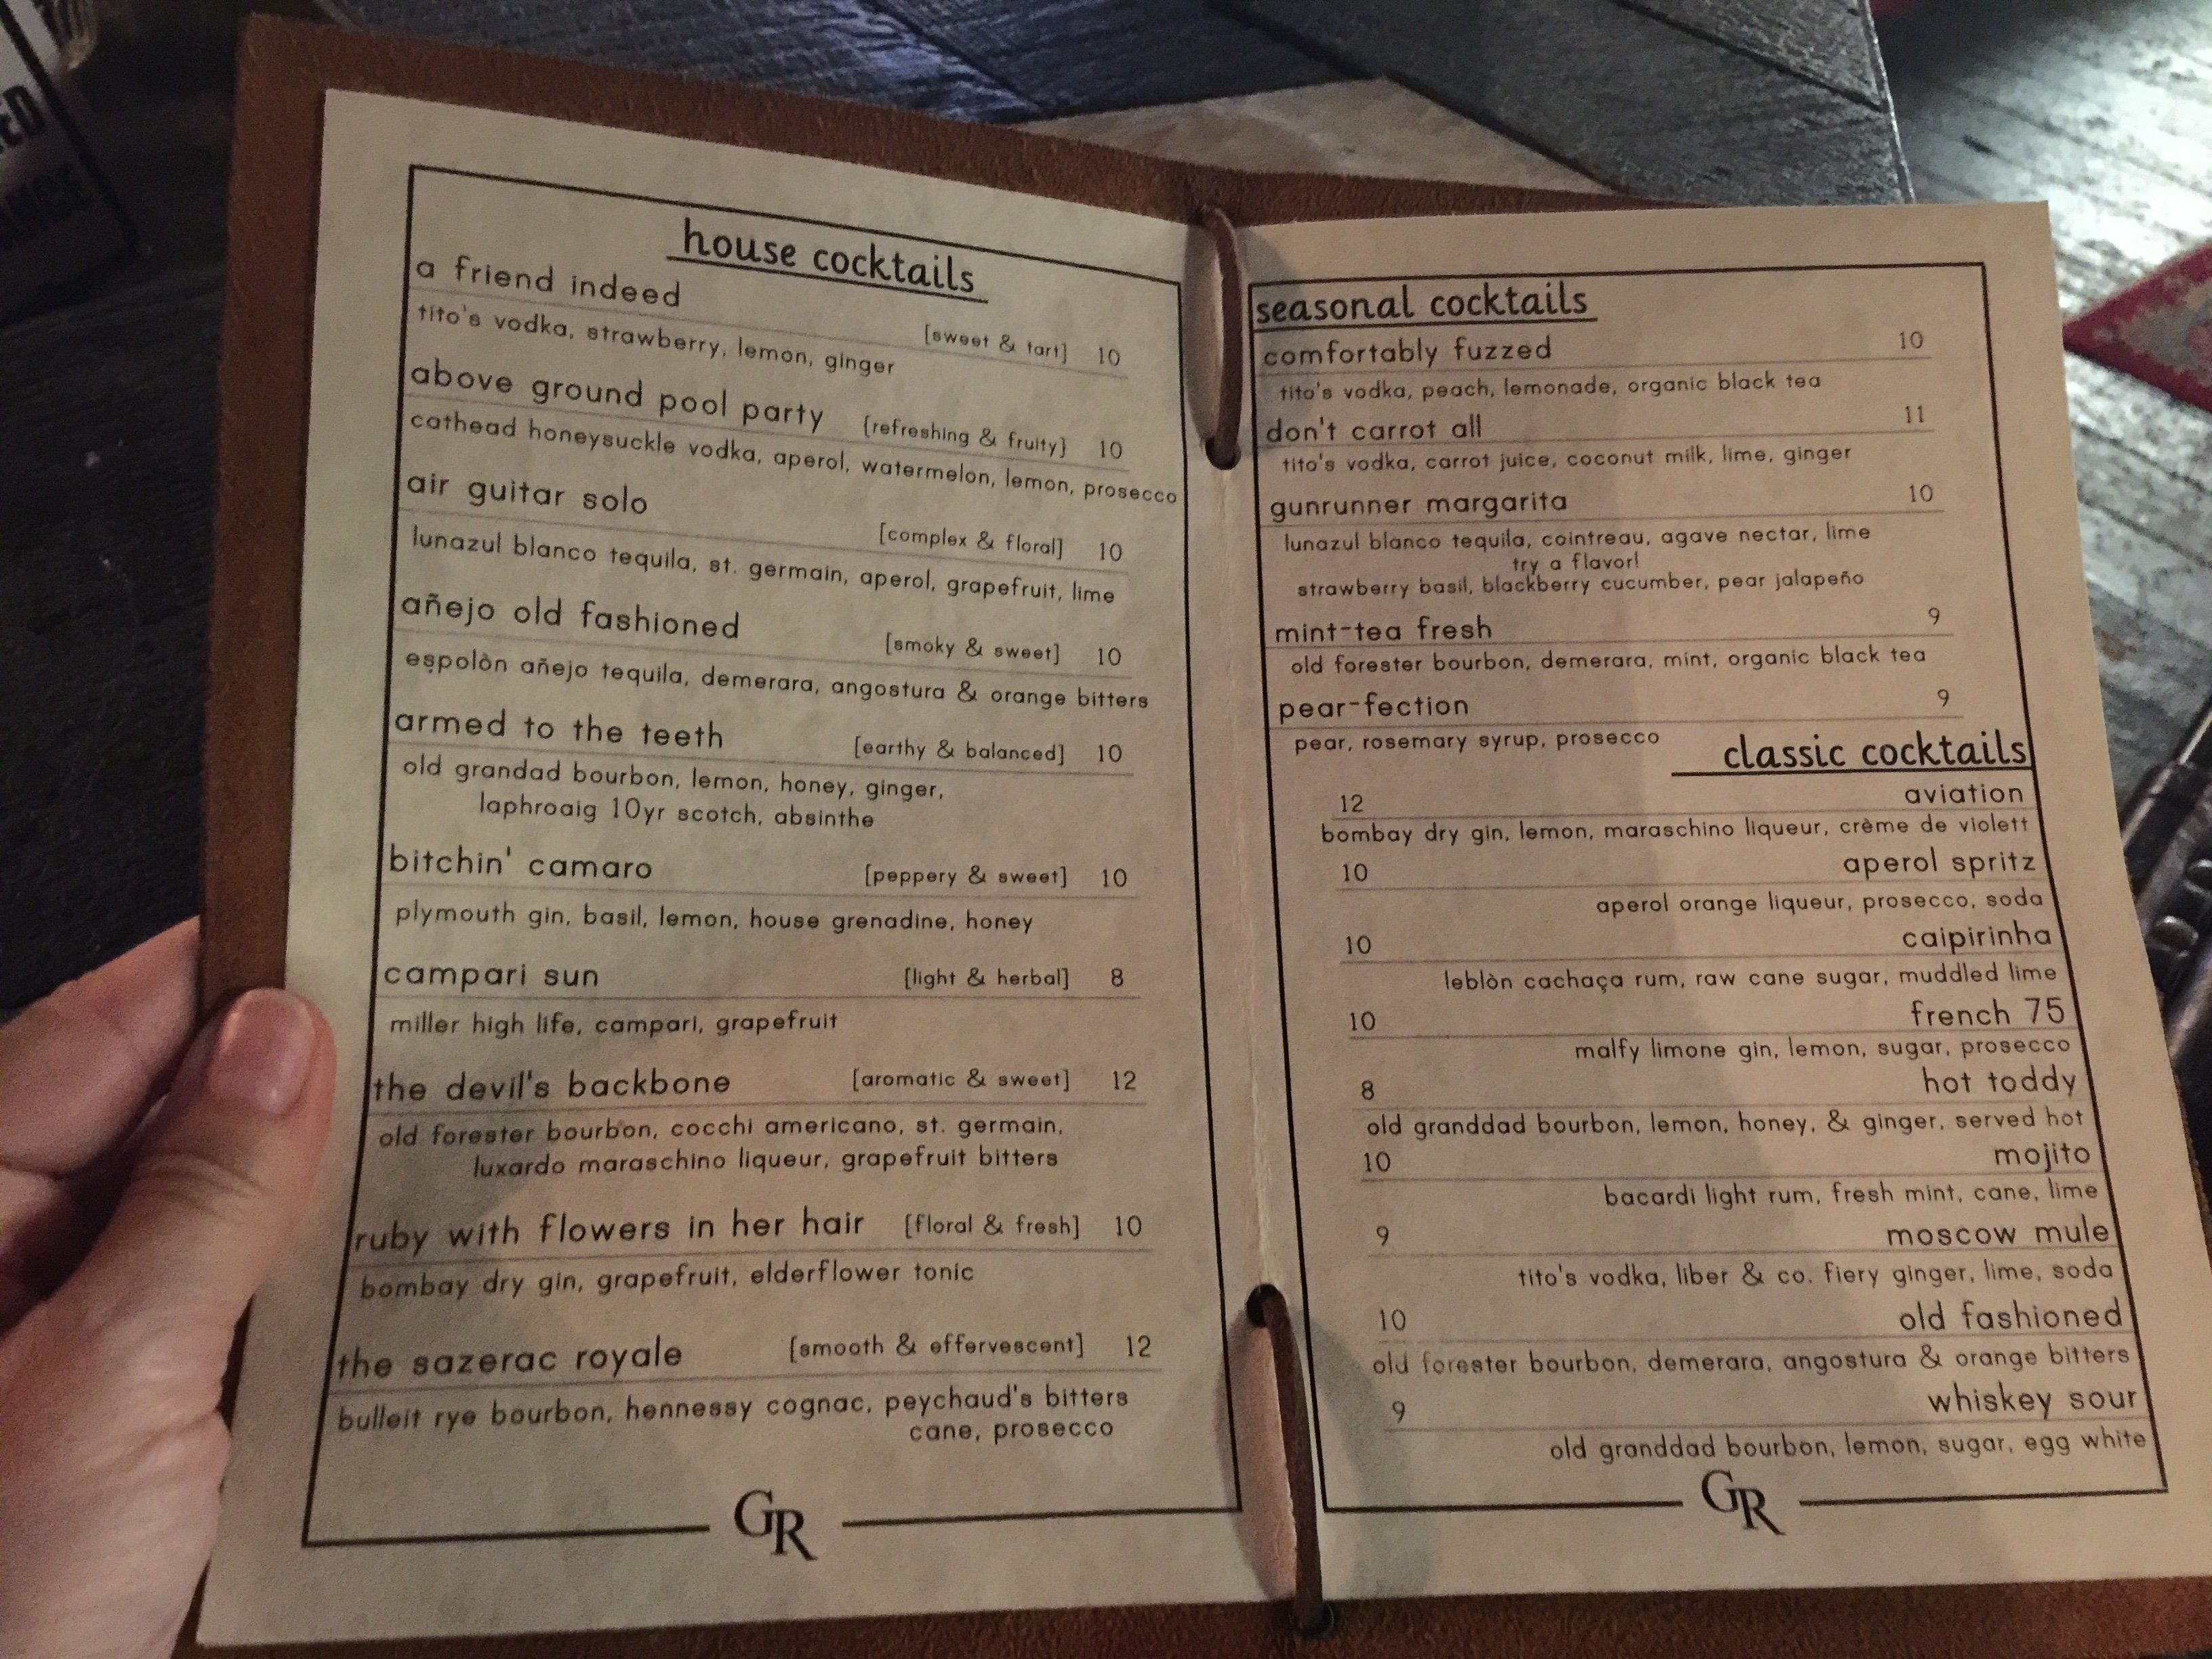 house cocktails
a friend indeed [sweet & tart] 10
tito's vodka, strawberry, lemon, ginger
above ground pool party {refreshing & fruity} 10
cathead honeysuckle vodka, aperol, watermelon, lemon, prosecco
air guitar solo [complex & floral] 10
lunazul blanco tequila, st. germain, aperol, grapefruit, lime
añejo old fashioned [smoky & sweet] 10
espolòn añejo tequila, demerara, angostura & orange bitters
armed to the teeth [earthy & balanced] 10
old grandad bourbon, lemon, honey, ginger,
laphroaig 10yr scotch, absinthe
bitchin' camaro [peppery & sweet] 10
plymouth gin, basil, lemon, house grenadine, honey
campari sun [light & herbal] 8
miller high life, campari, grapefruit
the devil's backbone [aromatic & sweet] 12
old forester bourbon, cocchi americano, st. germain,
luxardo maraschino liqueur, grapefruit bitters
ruby with flowers in her hair [floral & fresh] 10
bombay dry gin, grapefruit, elderflower tonic
the sazerac royale [smooth & effervescent] 12
bulleit rye bourbon, hennessy cognac, peychaud's bitters
cane, prosecco
GR
seasonal cocktails
comfortably fuzzed 10
tito's vodka, peach, lemonade, organic black tea
don't carrot all 11
tito's vodka, carrot juice, coconut milk, lime, ginger
gunrunner margarita 10
lunazul blanco tequila, cointreau, agave nectar, lime
try a flavor!
strawberry basil, blackberry cucumber, pear jalapeño
mint-tea fresh 9
old forester bourbon, demerara, mint, organic black tea
pear-fection 9
pear, rosemary syrup, prosecco
classic cocktails
12 aviation
bombay dry gin, lemon, maraschino liqueur, crème de violett
10 aperol spritz
aperol orange liqueur, prosecco, soda
10 caipirinha
leblòn cachaça rum, raw cane sugar, muddled lime
10 french 75
malfy limone gin, lemon, sugar, prosecco
8 hot toddy
old granddad bourbon, lemon, honey, & ginger, served hot
10 mojito
bacardi light rum, fresh mint, cane, lime
9 moscow mule
tito's vodka, liber & co. fiery ginger, lime, soda
10 old fashioned
old forester bourbon, demerara, angostura & orange bitters
9 whiskey sour
old granddad bourbon, lemon, sugar, egg white
GR